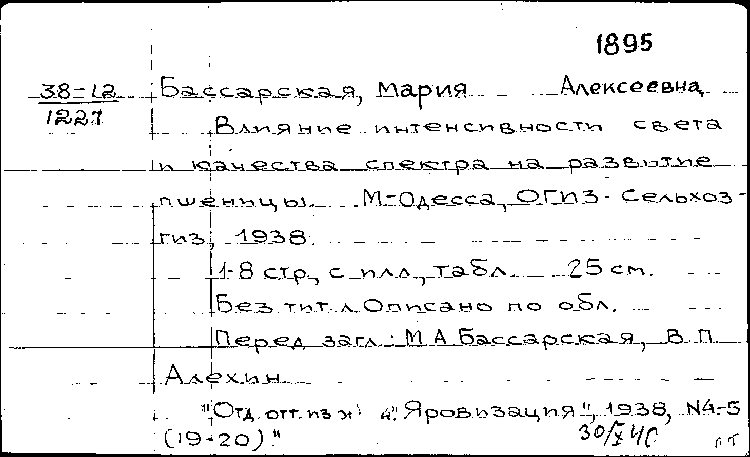 1895
38-12 Бассарская, Мария Алексеевна
1227
Влияние интенсивности света
и качества спектра на развитие
пшеницы. М-Одесса, ОГИЗ-Сельхоз-
гиз, 1938.
1-8 стр., с илл., табл. 25 см.
Без тит. л. Описано по обл.
Перед загл.: М.А. Бассарская, В.П.
Алехин
"Отд. отт. из ж. "Яровизация", 1938, N4-5
(19-20)."